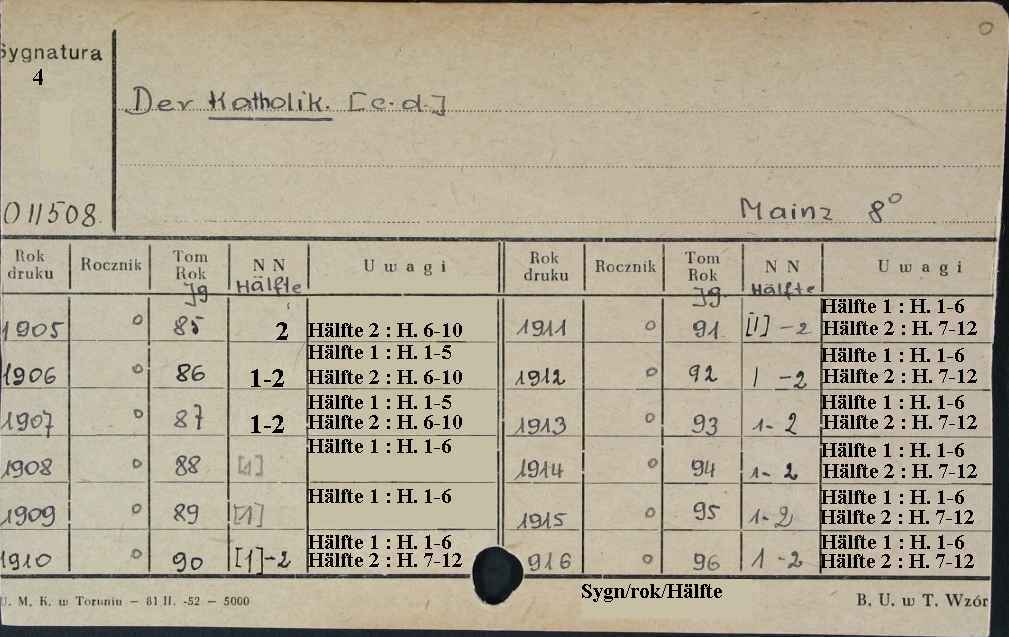 Sygnatura
4
Der Katholik. [c.d.]
011508
Mainz 8°
Rok druku Rocznik Tom Rok Jg NN Hälfte Uwagi Rok druku Rocznik Tom Rok Jg. NN Hälfte Uwagi
1905 0 85 2 Hälfte 2 : H. 6-10
1906 0 86 1-2 Hälfte 1 : H. 1-5
Hälfte 2 : H. 6-10
1907 0 87 1-2 Hälfte 1 : H. 1-5
Hälfte 2 : H. 6-10
1908 0 88 [1] Hälfte 1 : H. 1-6
1909 0 89 [1] Hälfte 1 : H. 1-6
1910 0 90 [1]-2 Hälfte 1 : H. 1-6
Hälfte 2 : H. 7-12
1911 0 91 [1]-2 Hälfte 1 : H. 1-6
Hälfte 2 : H. 7-12
1912 0 92 1-2 Hälfte 1 : H. 1-6
Hälfte 2 : H. 7-12
1913 0 93 1-2 Hälfte 1 : H. 1-6
Hälfte 2 : H. 7-12
1914 0 94 1-2 Hälfte 1 : H. 1-6
Hälfte 2 : H. 7-12
1915 0 95 1-2 Hälfte 1 : H. 1-6
Hälfte 2 : H. 7-12
916 0 96 1-2 Hälfte 1 : H. 1-6
Hälfte 2 : H. 7-12
Sygn/rok/Hälfte
U. M. K. w Toruniu — 81 II. -52 — 5000
B. U. w T. Wzór